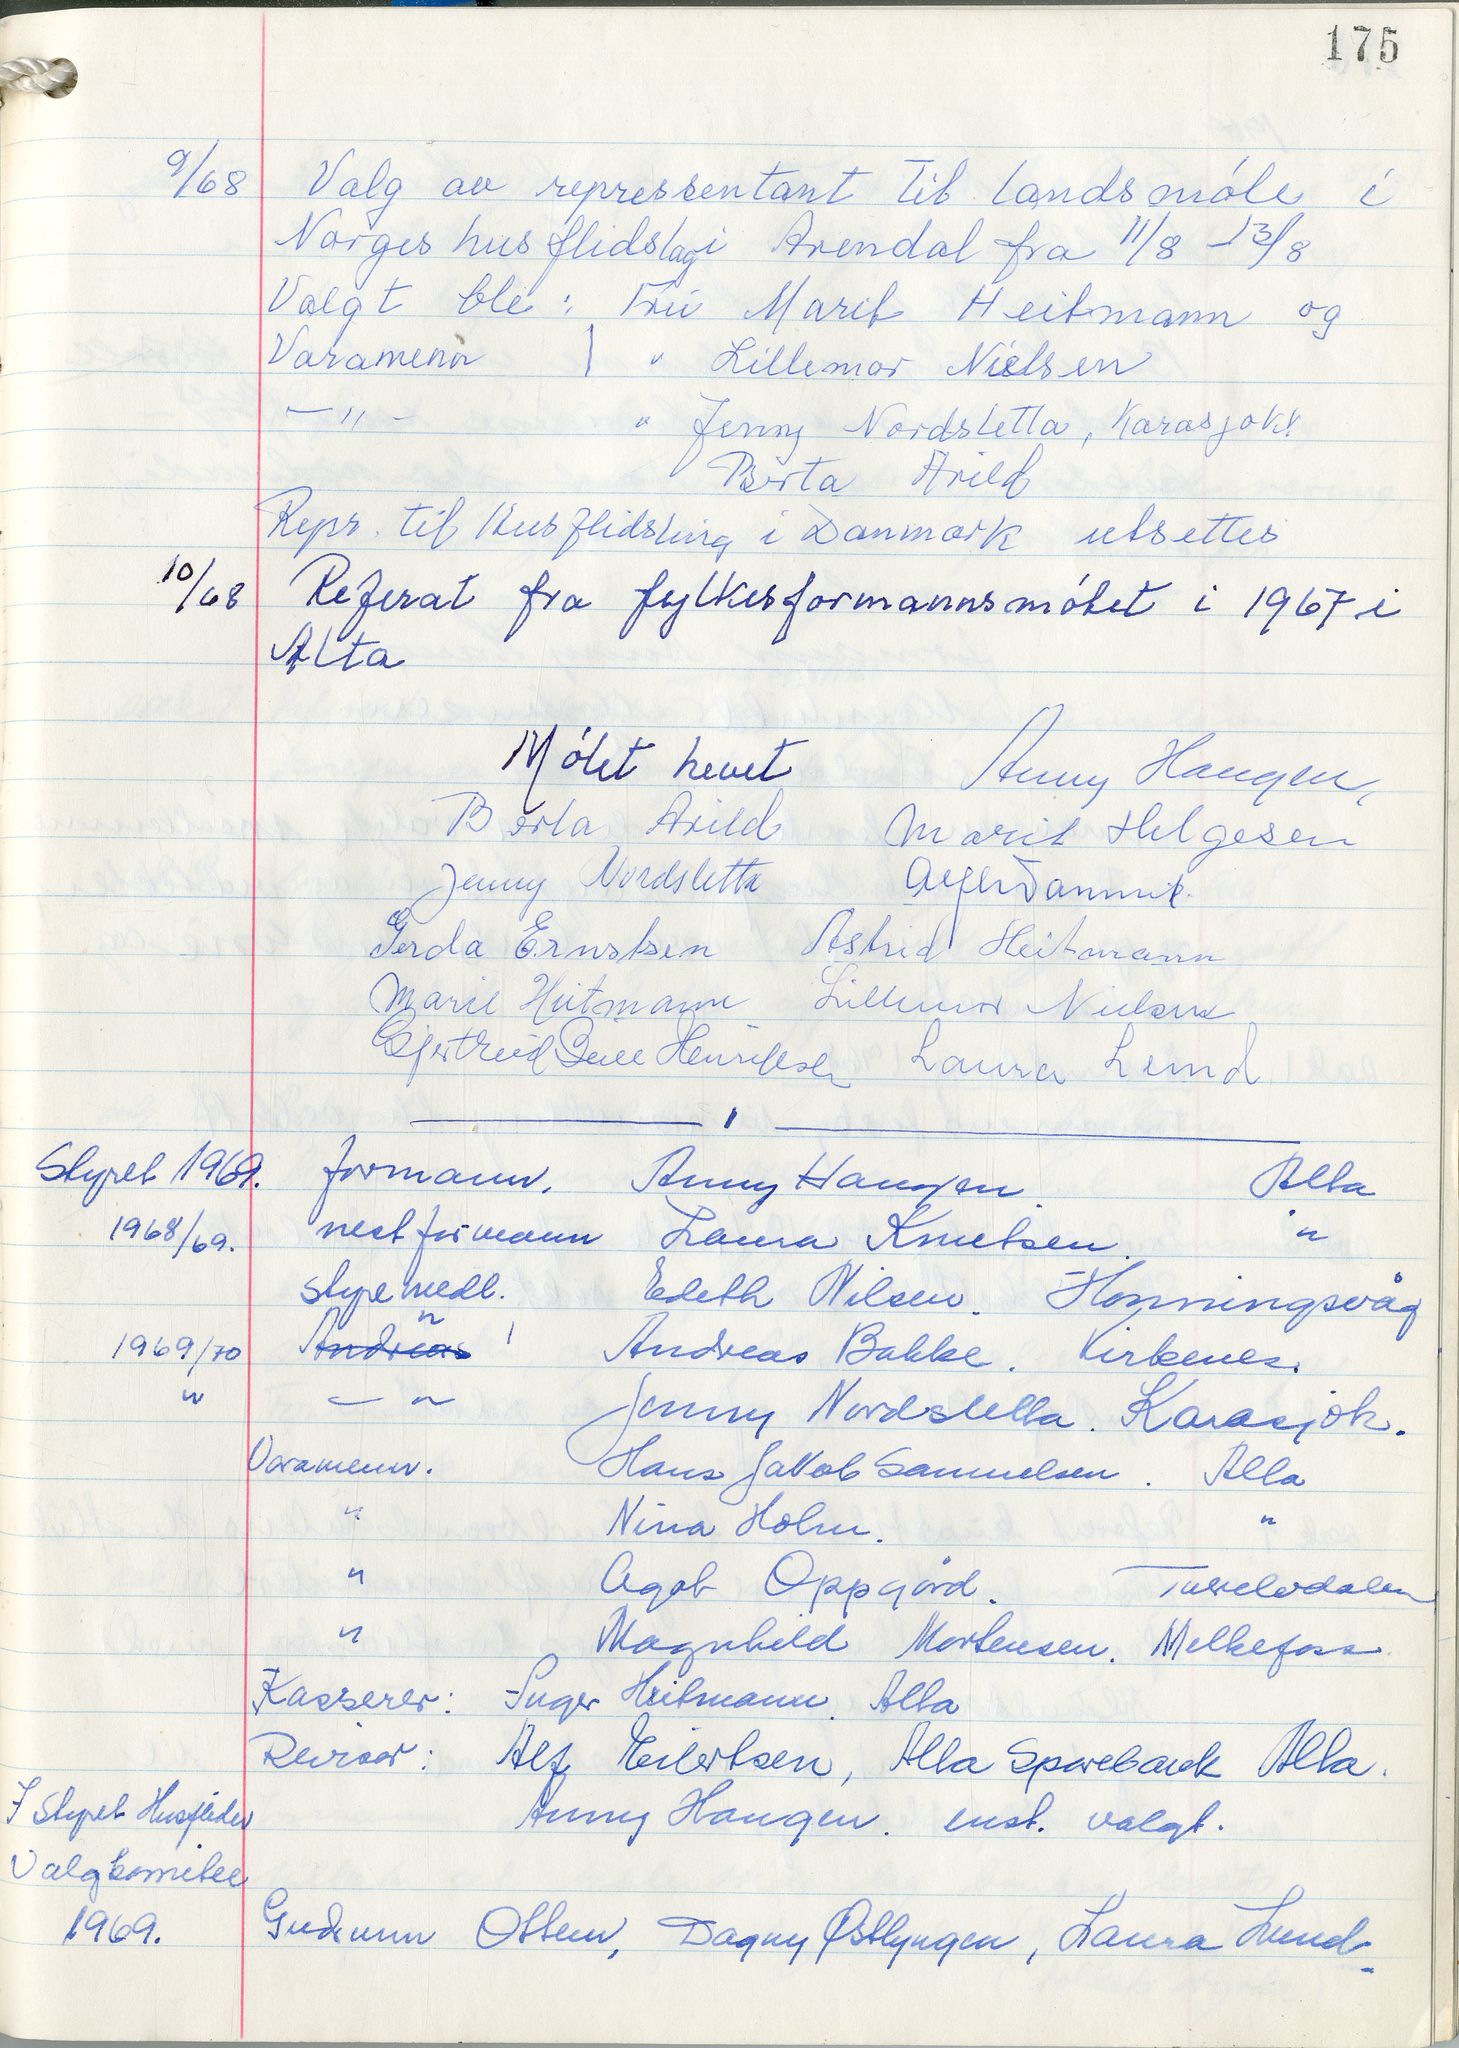 175
9/68 Valg av repressentant til landsmøte i
Norges husflidslag i Arendal fra 11/8 - 13/8
Valgt ble: Fru Marit Heitmann og
Varamenn " Lillemor Nielsen
- " - " Jenny Nordsletta, Karasjokk
Berta Arild
Repr. til Husflidsting i Danmark utsettes
10/68 Referat fra fylkesformannsmøtet i 1967 i
Alta
Møtet hevet Anny Haugen,
Berta Arild Marit Helgesen
Jenny Nordsletta
Gerda Ernstsen Astrid Heitmann
Marit Heitmann Lillemor Nielsen
Gjertrud Henriksen Laura Lund
Styret 1969. formann. Anny Haugen. Alta
1968/69. nestformann Laura Knutsen. "
styremedl. Edeth Nilsen. Honningsvåg
1969/70 Andreas " Andreas Bakke. Kirkenes.
" - " Jenny Nordsletta. Karasjok.
Varamenn. Hans Jakob Samuelsen. Alta
" Nina Holm. "
" Agot Oppgård.
" Magnhild Mortensen. Melkefoss
Kasserer: Inger Heitmann. Alta
Revisor: Alf Eilertsen, Alta Sparebank Alta.
I Styret Husfliden Anny Haugen. enst. valgt.
Valgkomitee
1969. Gudrunn Ottem, Dagny Østlyngen, Laura Lund.